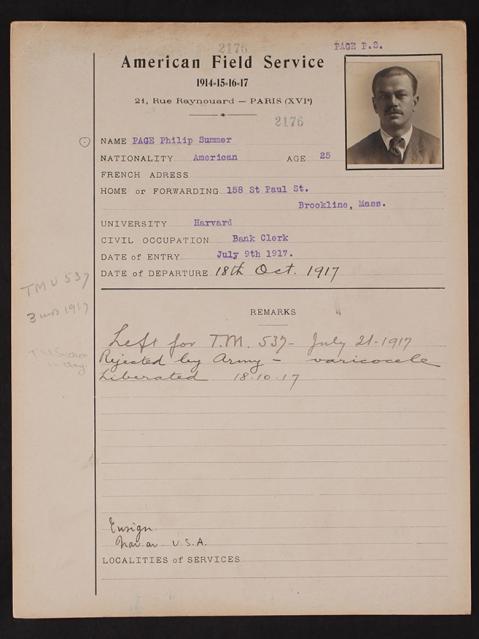 2176
PAGE P.S.
American Field Service
1914-15-16-17
21, Rue Raynouard — PARIS (XVIe)
2176
NAME PAGE Philip Summer
NATIONALITY American AGE 25
FRENCH ADRESS
HOME or FORWARDING 158 St Paul St.
Brookline, Mass.
UNIVERSITY Harvard
CIVIL OCCUPATION Bank Clerk
DATE of ENTRY July 9th 1917.
DATE of DEPARTURE 18th Oct. 1917
TMU 537
3 1917
REMARKS
Left for T.M. 537- July 21-1917
Rejected by Army - varicocele
Liberated 18.10.17
Ensign
U.S.A.
LOCALITIES of SERVICES